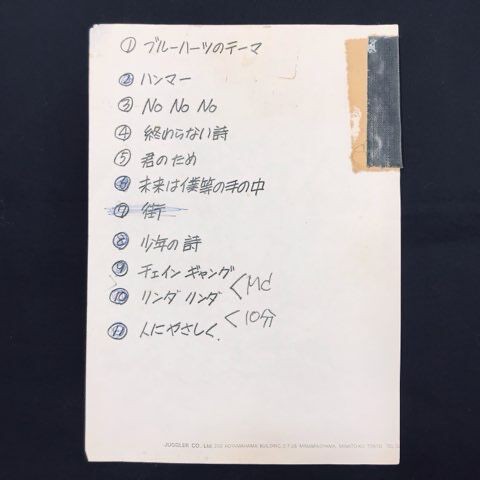 ① ブルーハーツのテーマ
② ハンマー
③ No No No
④ 終わらない詩
⑤ 君のため
⑥ 未来は僕等の手の中
⑦ 街
⑧ 少年の詩
⑨ チェイン ギャング
< MC
⑩ リンダ リンダ
< 10分
⑪ 人にやさしく.
JUGGLER CO., Ltd.